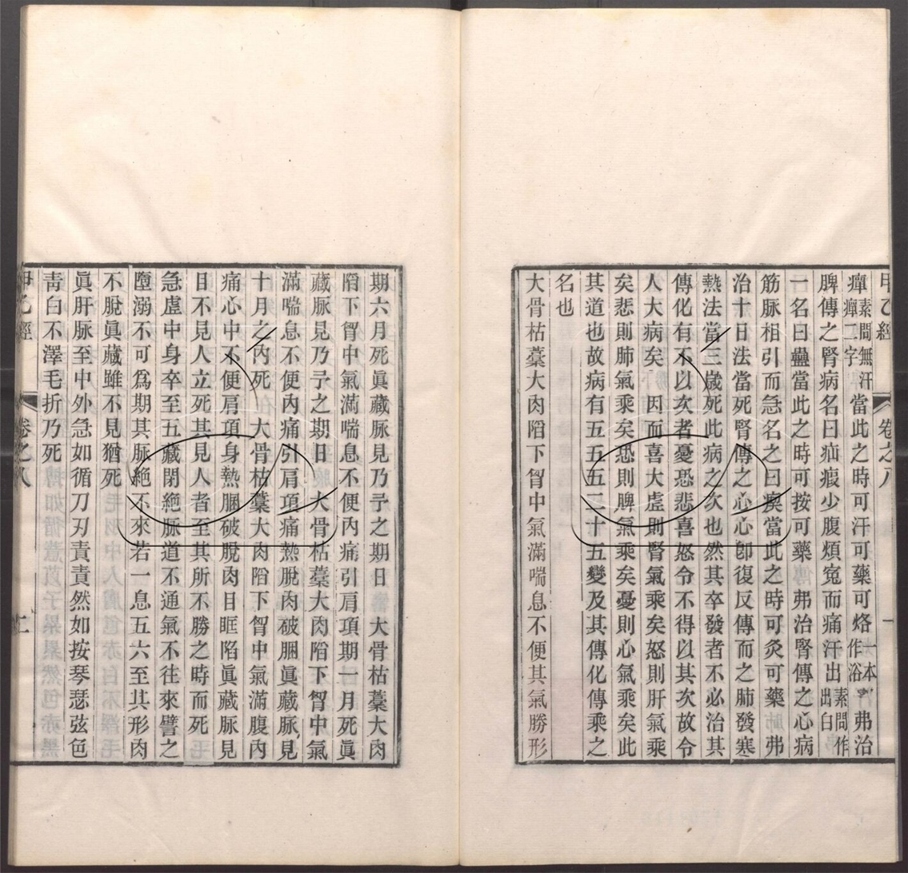 甲乙經 卷之八 一
癉素問無汗癉二字當此之時可汗可藥可烙一本作浴弗治
脾傳之腎病名曰疝瘕少腹煩寃而痛汗出素問作出白
一名曰蠱當此之時可按可藥弗治腎傳之心病
筋脉相引而急名之曰瘈當此之時可灸可藥弗
治十日法當死腎傳之心心卽復反傳而之肺發寒
熱法當三歲死此病之次也然其卒發者不必治其
傳化有不以次者憂恐悲喜怒令不得以其次故令
人大病矣因而喜大虛則腎氣乘矣怒則肝氣乘
矣悲則肺氣乘矣恐則脾氣乘矣憂則心氣乘矣此
其道也故病有五五五二十五變及其傳化傳乘之
名也
大骨枯藁大肉陷下胷中氣滿喘息不便其氣勝形
期六月死眞藏脉見乃予之期日大骨枯藁大肉
陷下胷中氣滿喘息不便內痛引肩項期一月死眞
藏脉見乃予之期日大骨枯藁大肉陷下胷中氣
滿喘息不便內痛引肩項痛熱脫肉破䐃眞藏脉見
十月之內死大骨枯藁大肉陷下胷中氣滿腹內
痛心中不便肩項身熱䐃破脫肉目眶陷眞藏脉見
目不見人立死其見人者至其所不勝之時而死
急虛中身卒至五藏閉絕脉道不通氣不往來譬之
墮溺不可爲期其脉絕不來若一息五六至其形肉
不脫眞藏雖不見猶死
眞肝脉至中外急如循刀刃責責然如按琴瑟弦色
靑白不澤毛折乃死
甲乙經 卷之八 二